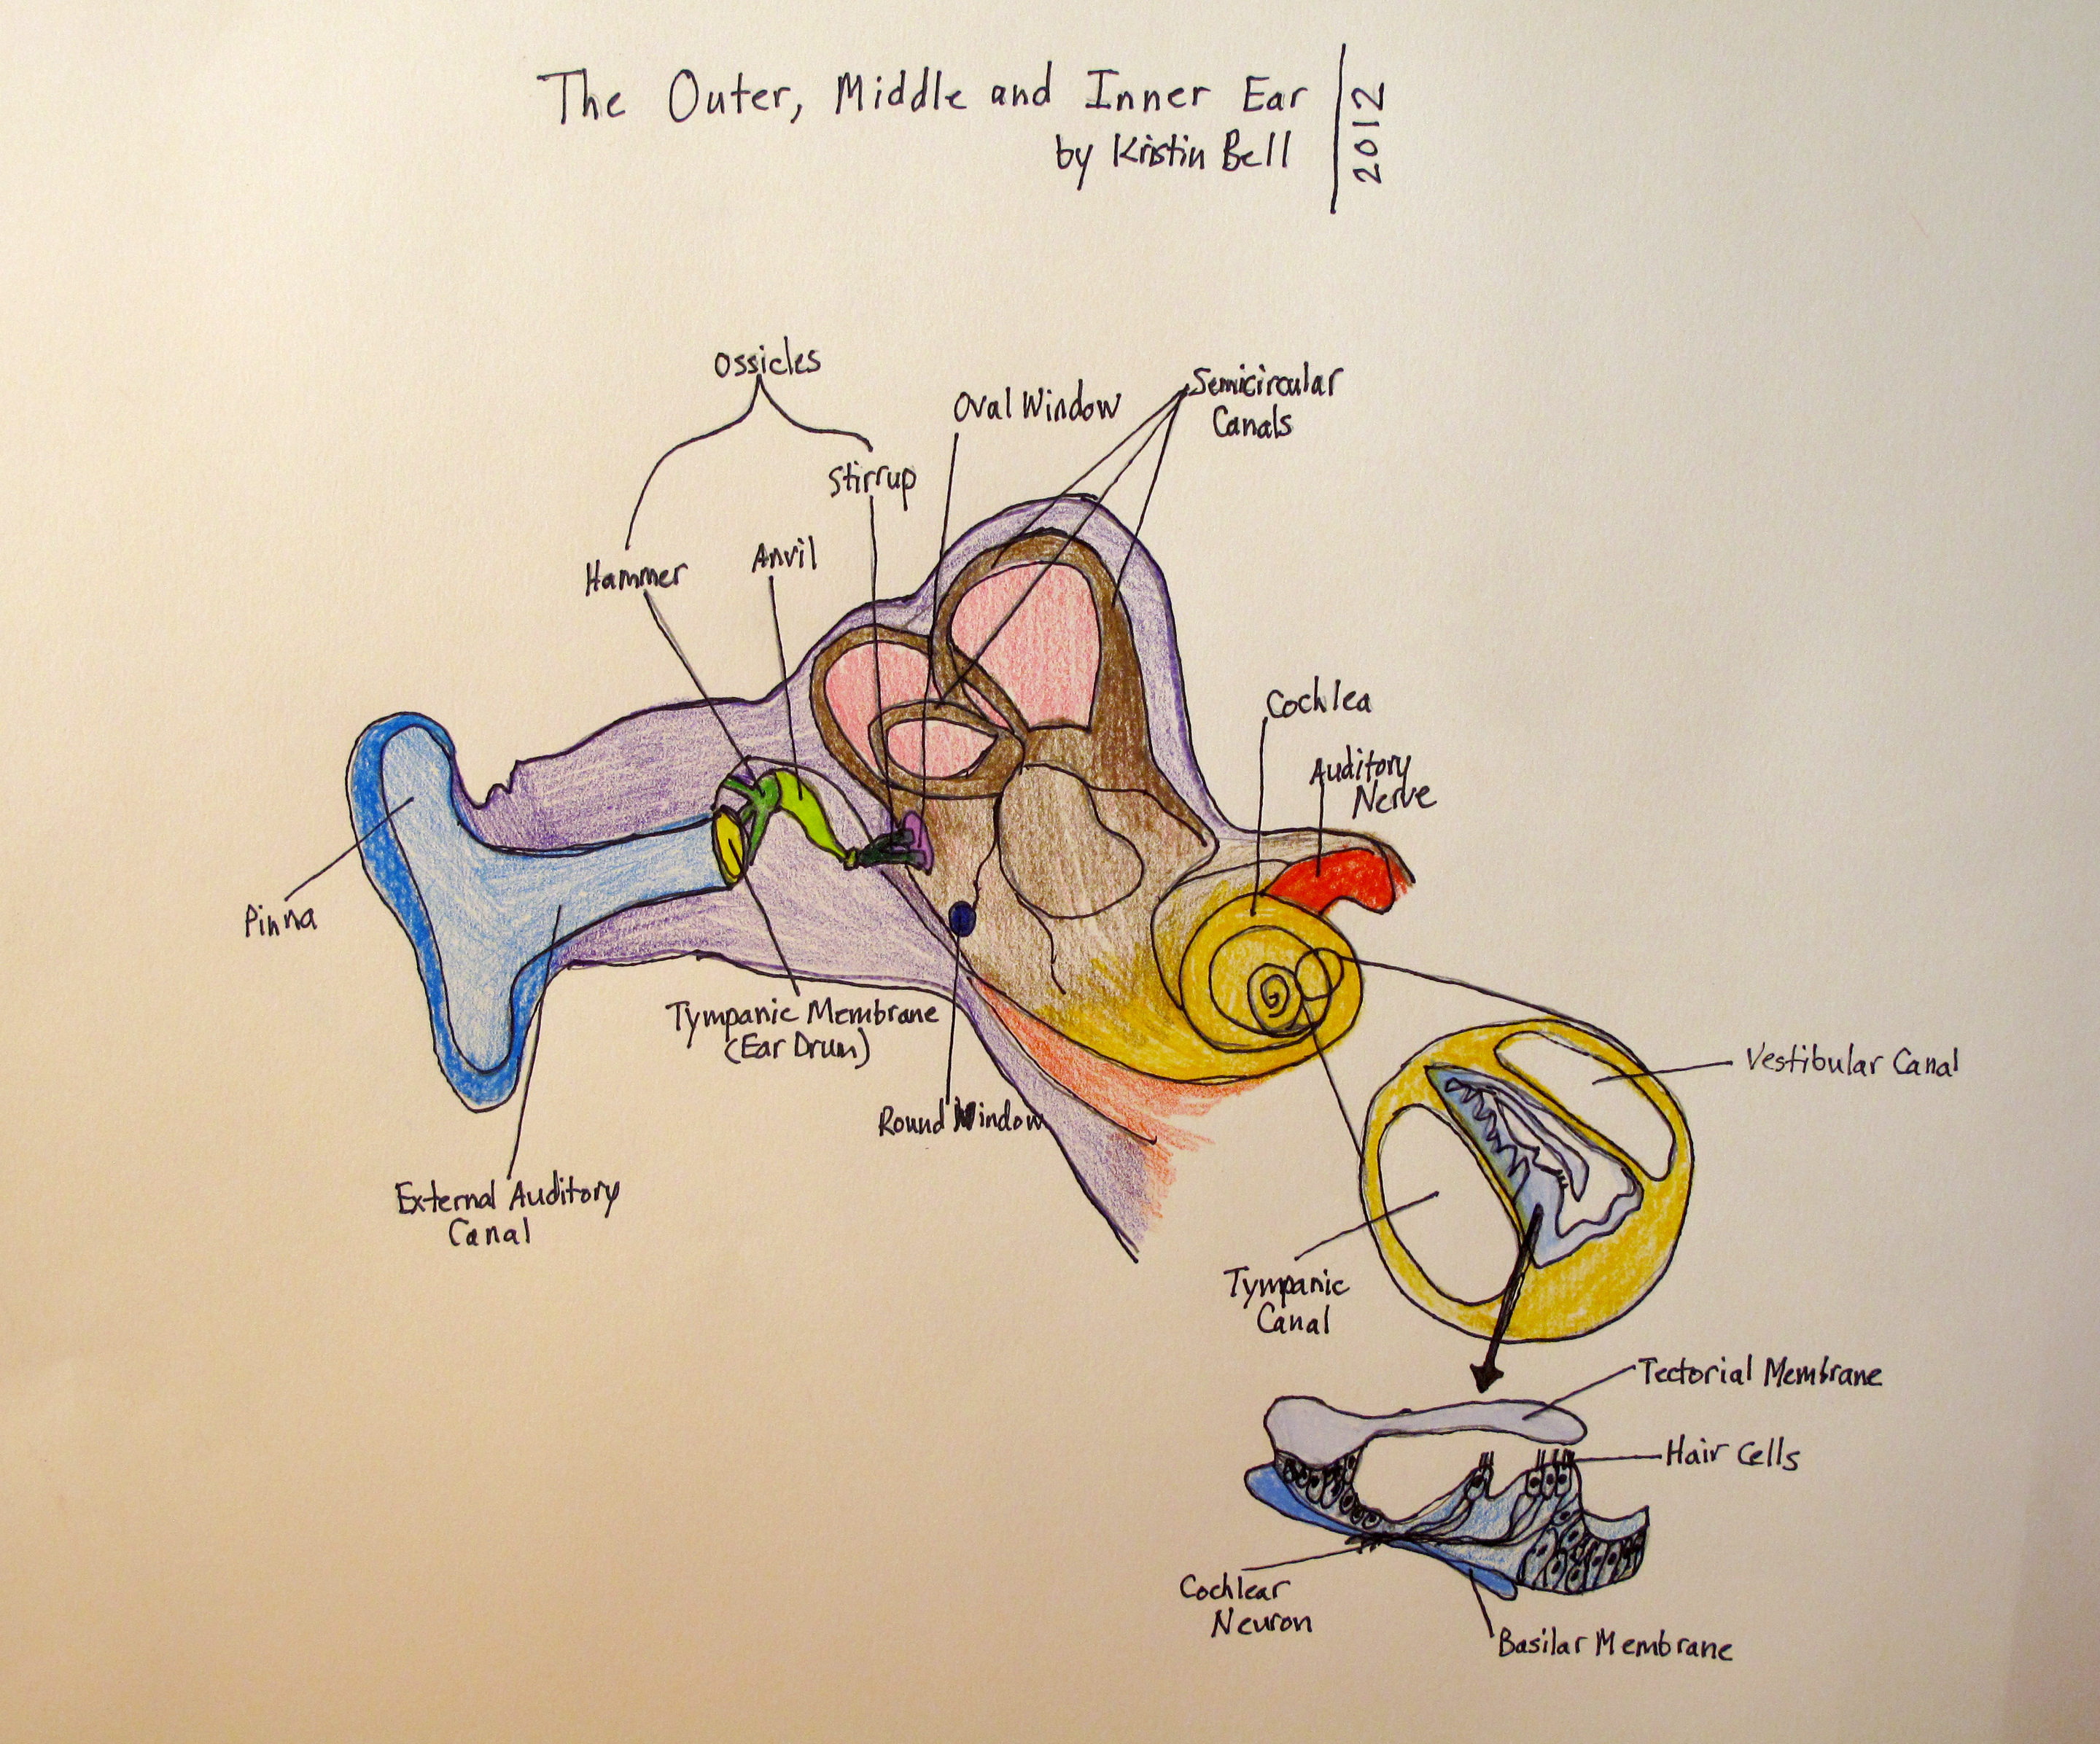 The Outer, Middle and Inner Ear
by Kristin Bell
2012
Ossicles
Oval Window
Semicircular
Canals
Stirrup
Hammer
Anvil
Cochlea
Auditory
Nerve
Pinna
Tympanic Membrane
(Ear Drum)
Round Window
External Auditory
Canal
Vestibular Canal
Tympanic
Canal
Tectorial Membrane
Hair Cells
Cochlear
Neuron
Basilar Membrane